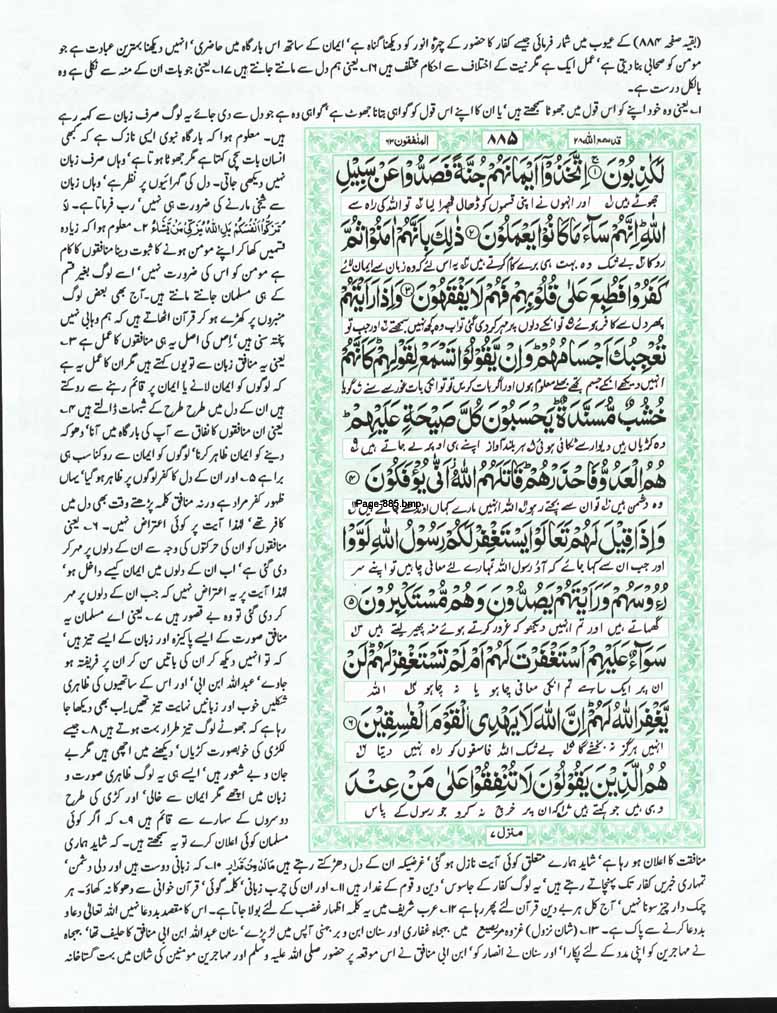 (بقیہ صفحہ ۸۸۴) کے عیوب میں شمار فرمائی جیسے کفار کا حضور کے چہرۂ انور کو دیکھنا گناہ ہے' ایمان کے ساتھ اس بارگاہ میں حاضری' انہیں دیکھنا بہترین عبادت ہے جو
مومن کو صحابی بنا دیتی ہے' عمل ایک ہے مگر نیت کے اختلاف سے احکام مختلف ہیں ۱۶۔ یعنی ہم دل سے مانتے جانتے ہیں ۱۷۔ یعنی جو بات ان کے منہ سے نکلی ہے وہ
بالکل درست ہے۔
۱۔ یعنی وہ خود اپنے کو اس قول میں جھوٹا سمجھتے ہیں' یا ان کا اپنے اس قول کو گواہی بتانا جھوٹ ہے' گواہی وہ ہے جو دل سے دی جائے یہ لوگ صرف زبان سے کہہ رہے
ہیں۔ معلوم ہوا کہ بارگاہ نبوی ایسی نازک ہے کہ کبھی
انسان بات سچی کہتا ہے مگر جھوٹا ہوتا ہے' وہاں صرف زبان
نہیں دیکھی جاتی۔ دل کی گہرائیوں پر نظر ہے' وہاں زبان
سے شیخی مارنے کی ضرورت ہی نہیں' رب فرماتا ہے۔ لَا
تُزَكُّوْٓا اَنْفُسَكُمْ بَلِ اللّٰهُ يُزَكِّيْ مَنْ يَّشَآءُ ۲۔ معلوم ہوا کہ زیادہ
قسمیں کھا کر اپنے مومن ہونے کا ثبوت دینا منافقوں کا کام
ہے مومن کو اس کی ضرورت نہیں' اسے لوگ بغیر قسم
کے ہی مسلمان جانتے مانتے ہیں۔ آج بھی بعض لوگ
منبروں پر کھڑے ہو کر قرآن اٹھاتے ہیں کہ ہم وہابی نہیں
پختہ سنی ہیں' اس کی اصل یہ ہی منافقوں کا عمل ہے ۳۔
یعنی یہ منافق زبان سے تو یوں کہتے ہیں مگر ان کا عمل یہ ہے
کہ لوگوں کو ایمان لانے یا ایمان پر قائم رہنے سے روکتے
ہیں ان کے دل میں طرح طرح کے شبہات ڈالتے ہیں ۴۔
یعنی ان منافقوں کا نفاق سے آپ کی بارگاہ میں آنا' دھوکہ
دینے کو ایمان ظاہر کرنا' لوگوں کو ایمان سے روکنا سب ہی
برا ہے ۵۔ اور ان کے دل کا کفر لوگوں پر ظاہر ہو گیا' یہاں
ظہور کفر مراد ہے ورنہ منافق کلمہ پڑھتے وقت بھی دل میں
کافر تھے' لہٰذا آیت پر کوئی اعتراض نہیں۔ ۶۔ یعنی
منافقوں کو ان کی حرکتوں کی وجہ سے ان کے دلوں پر مہر کر
دی گئی ہے' اب ان کے دلوں میں ایمان کیسے داخل ہو'
لہٰذا آیت پر یہ اعتراض نہیں کہ جب ان کے دلوں پر مہر
کر دی گئی تو وہ بے قصور ہیں ۷۔ یعنی اے مسلمان یہ
منافق صورت کے ایسے پاکیزہ اور زبان کے ایسے تیز ہیں'
کہ تو انہیں دیکھ کر ان کی باتیں سن کر ان پر فریفتہ ہو
جاوے' عبداللہ ابن ابی' اور اس کے ساتھیوں کی ظاہری
شکلیں خوب اور زبانیں نہایت تیز تھیں۔ اب بھی دیکھا جا
رہا ہے کہ جھوٹے لوگ تیز طرار بہت ہوتے ہیں ۸۔ جیسے
لکڑی کی خوبصورت کڑیاں' دیکھنے میں اچھی ہیں مگر بے
جان و بے شعور ہیں' ایسے ہی یہ لوگ ظاہری صورت و
زبان میں اچھے مگر ایمان سے خالی' اور کڑی کی طرح
دوسروں کے سہارے سے قائم ہیں ۹۔ کہ اگر کوئی
مسلمان کوئی اعلان کرے تو یہ سمجھتے ہیں۔ کہ شاید ہماری
قد سمع اللہ ۲۸
۸۸۵
المنٰفقون ۶۳
لَكٰذِبُوْنَ ۝۱ اِتَّخَذُوْۤا اَيْمَانَهُمْ جُنَّةً فَصَدُّوْا عَنْ سَبِيْلِ
جھوٹے ہیں اور انہوں نے اپنی قسموں کو ڈھال ٹھہرا لیا تو اللہ کی راہ سے
اللّٰهِ اِنَّهُمْ سَآءَ مَا كَانُوْا يَعْمَلُوْنَ ۝۲ ذٰلِكَ بِاَنَّهُمْ اٰمَنُوْا ثُمَّ
روکا بے شک وہ بہت ہی برے کام کرتے ہیں یہ اس لئے کہ وہ زبان سے ایمان لائے
كَفَرُوْا فَطُبِعَ عَلٰى قُلُوْبِهِمْ فَهُمْ لَا يَفْقَهُوْنَ ۝۳ وَاِذَا رَاَيْتَهُمْ
پھر دل سے کافر ہوئے تو انکے دلوں پر مہر کر دی گئی تو اب وہ کچھ نہیں سمجھتے اور جب تو
تُعْجِبُكَ اَجْسَامُهُمْ وَاِنْ يَّقُوْلُوْا تَسْمَعْ لِقَوْلِهِمْ كَاَنَّهُمْ
انہیں دیکھے انکے جسم تجھے بھلے معلوم ہوں اور اگر بات کریں تو تو انکی بات غور سے سنے گویا
خُشُبٌ مُّسَنَّدَةٌ يَحْسَبُوْنَ كُلَّ صَيْحَةٍ عَلَيْهِمْ
وہ کڑیاں ہیں دیوار سے ٹکائی ہوئی ہر بلند آواز اپنے ہی اوپر لے جاتے ہیں
هُمُ الْعَدُوُّ فَاحْذَرْهُمْ قَاتَلَهُمُ اللّٰهُ اَنّٰى يُؤْفَكُوْنَ ۝۴
وہ دشمن ہیں تو ان سے بچتے رہو اللہ انہیں مارے کہاں اوندھے جاتے ہیں
Page-885.bmp
وَاِذَا قِيْلَ لَهُمْ تَعَالَوْا يَسْتَغْفِرْ لَكُمْ رَسُوْلُ اللّٰهِ لَوَّوْا
اور جب ان سے کہا جائے کہ آؤ رسول اللہ تمہارے لئے معافی چاہیں تو اپنے سر
رُءُوْسَهُمْ وَرَاَيْتَهُمْ يَصُدُّوْنَ وَهُمْ مُّسْتَكْبِرُوْنَ ۝۵
گھماتے ہیں اور تم انہیں دیکھو کہ غرور کرتے ہوئے منہ پھیر لیتے ہیں
سَوَآءٌ عَلَيْهِمْ اَسْتَغْفَرْتَ لَهُمْ اَمْ لَمْ تَسْتَغْفِرْ لَهُمْ لَنْ
ان پر ایک سا ہے تم انکی معافی چاہو یا نہ چاہو اللہ
يَّغْفِرَ اللّٰهُ لَهُمْ اِنَّ اللّٰهَ لَا يَهْدِى الْقَوْمَ الْفٰسِقِيْنَ ۝۶
انہیں ہرگز نہ بخشے گا بے شک اللہ فاسقوں کو راہ نہیں دیتا
هُمُ الَّذِيْنَ يَقُوْلُوْنَ لَا تُنْفِقُوْا عَلٰى مَنْ عِنْدَ
وہی ہیں جو کہتے ہیں کہ ان پر خرچ نہ کرو جو رسول کے پاس
منزل ۷
منافقت کا اعلان ہو رہا ہے' شاید ہمارے متعلق کوئی آیت نازل ہو گئی' غرضیکہ ان کے دل دھڑکتے رہتے ہیں ۱۰۔ کہ زبانی دوست ہیں اور دلی دشمن'
تمہاری خبریں کفار تک پہنچاتے رہتے ہیں' یہ لوگ کفار کے جاسوس' دین و قوم کے غدار ہیں ۱۱۔ اور ان کی چرب زبانی' کلمہ گوئی' قرآن خوانی سے دھوکا نہ کھاؤ۔ ہر
چمک دار چیز سونا نہیں' آج کل ہر بے دین قرآن لئے پھر رہا ہے ۱۲۔ عرب شریف میں یہ کلمہ اظہار غضب کے لئے بولا جاتا ہے۔ اس کا مقصد بددعا نہیں اللہ تعالیٰ دعا و
بددعا کرنے سے پاک ہے۔ ۱۳۔ (شان نزول) غزوہ مریسیع میں جہجاہ غفاری اور سنان ابن و بر جہنی آپس میں لڑ پڑے' سنان عبداللہ ابن ابی منافق کا حلیف تھا' جہجاہ
نے مہاجرین کو اپنی مدد کے لئے پکارا' اور سنان نے انصار کو' ابن ابی منافق نے اس موقعہ پر حضور صلی اللہ علیہ وسلم اور مہاجرین مومنین کی شان میں بہت گستاخانہ